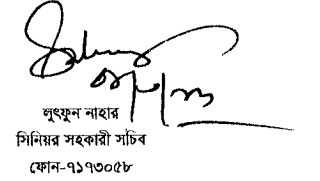 লুৎফুন নাহার
সিনিয়র সহকারী সচিব
ফোন-৭১৭৩০৫৮